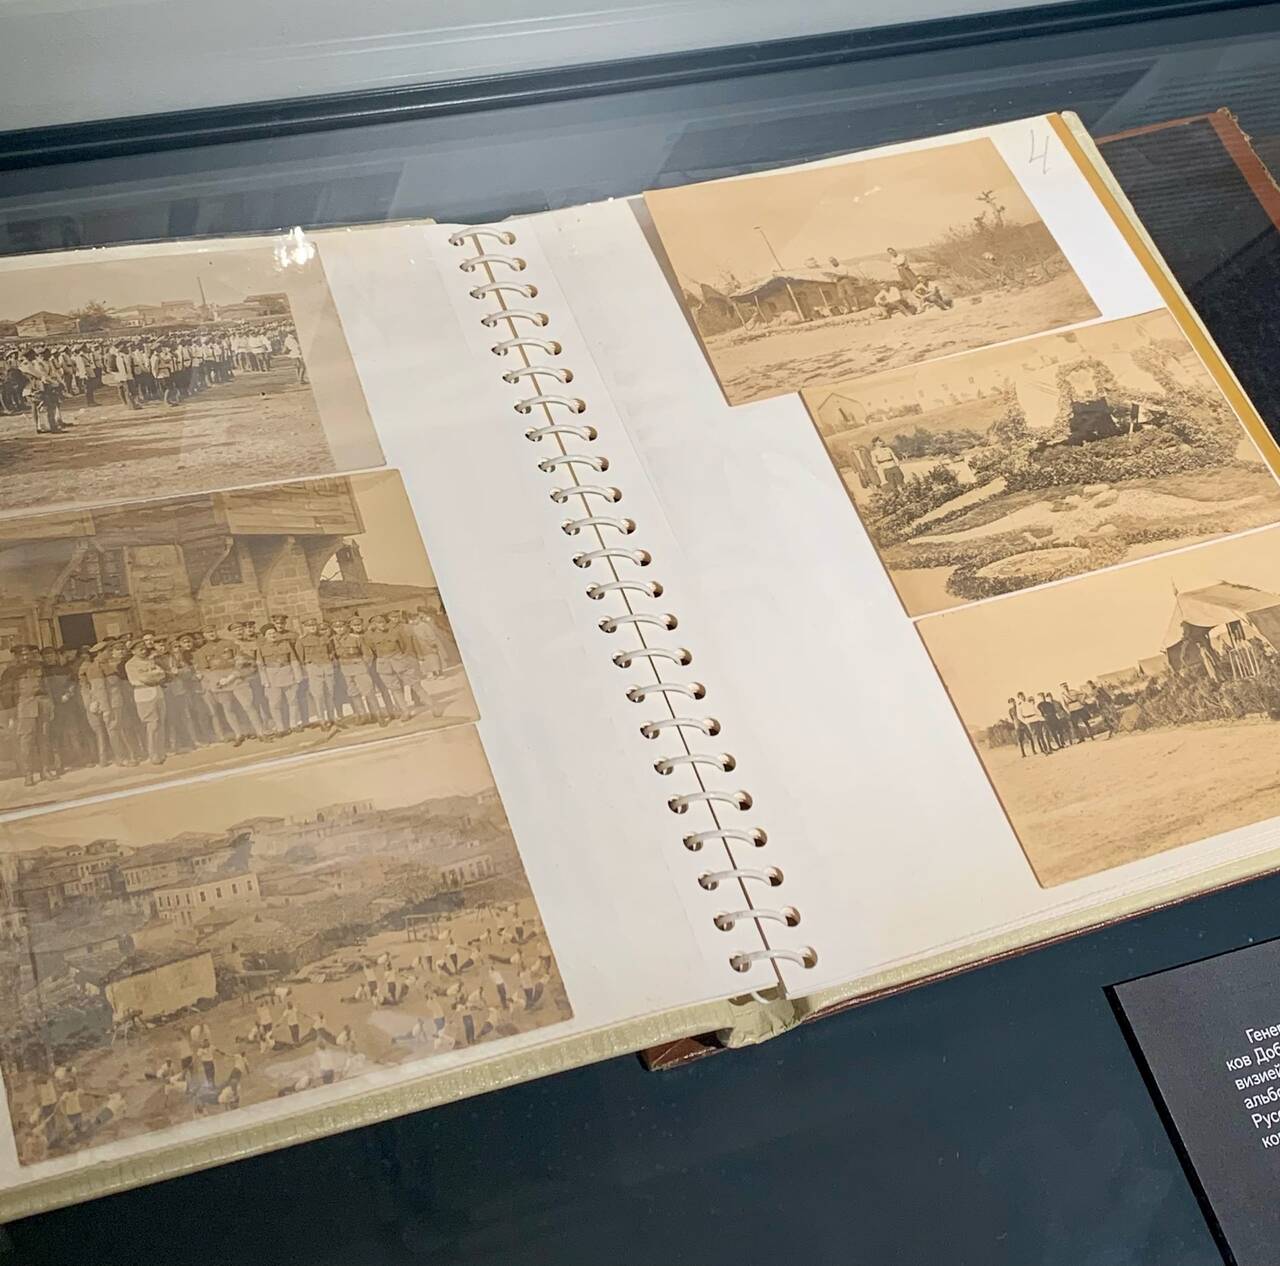 4
Гене
ков Доб
визией
альбо
Русс
ко